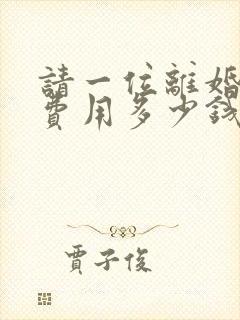 請一位離婚
費用多少錢
賈子俊